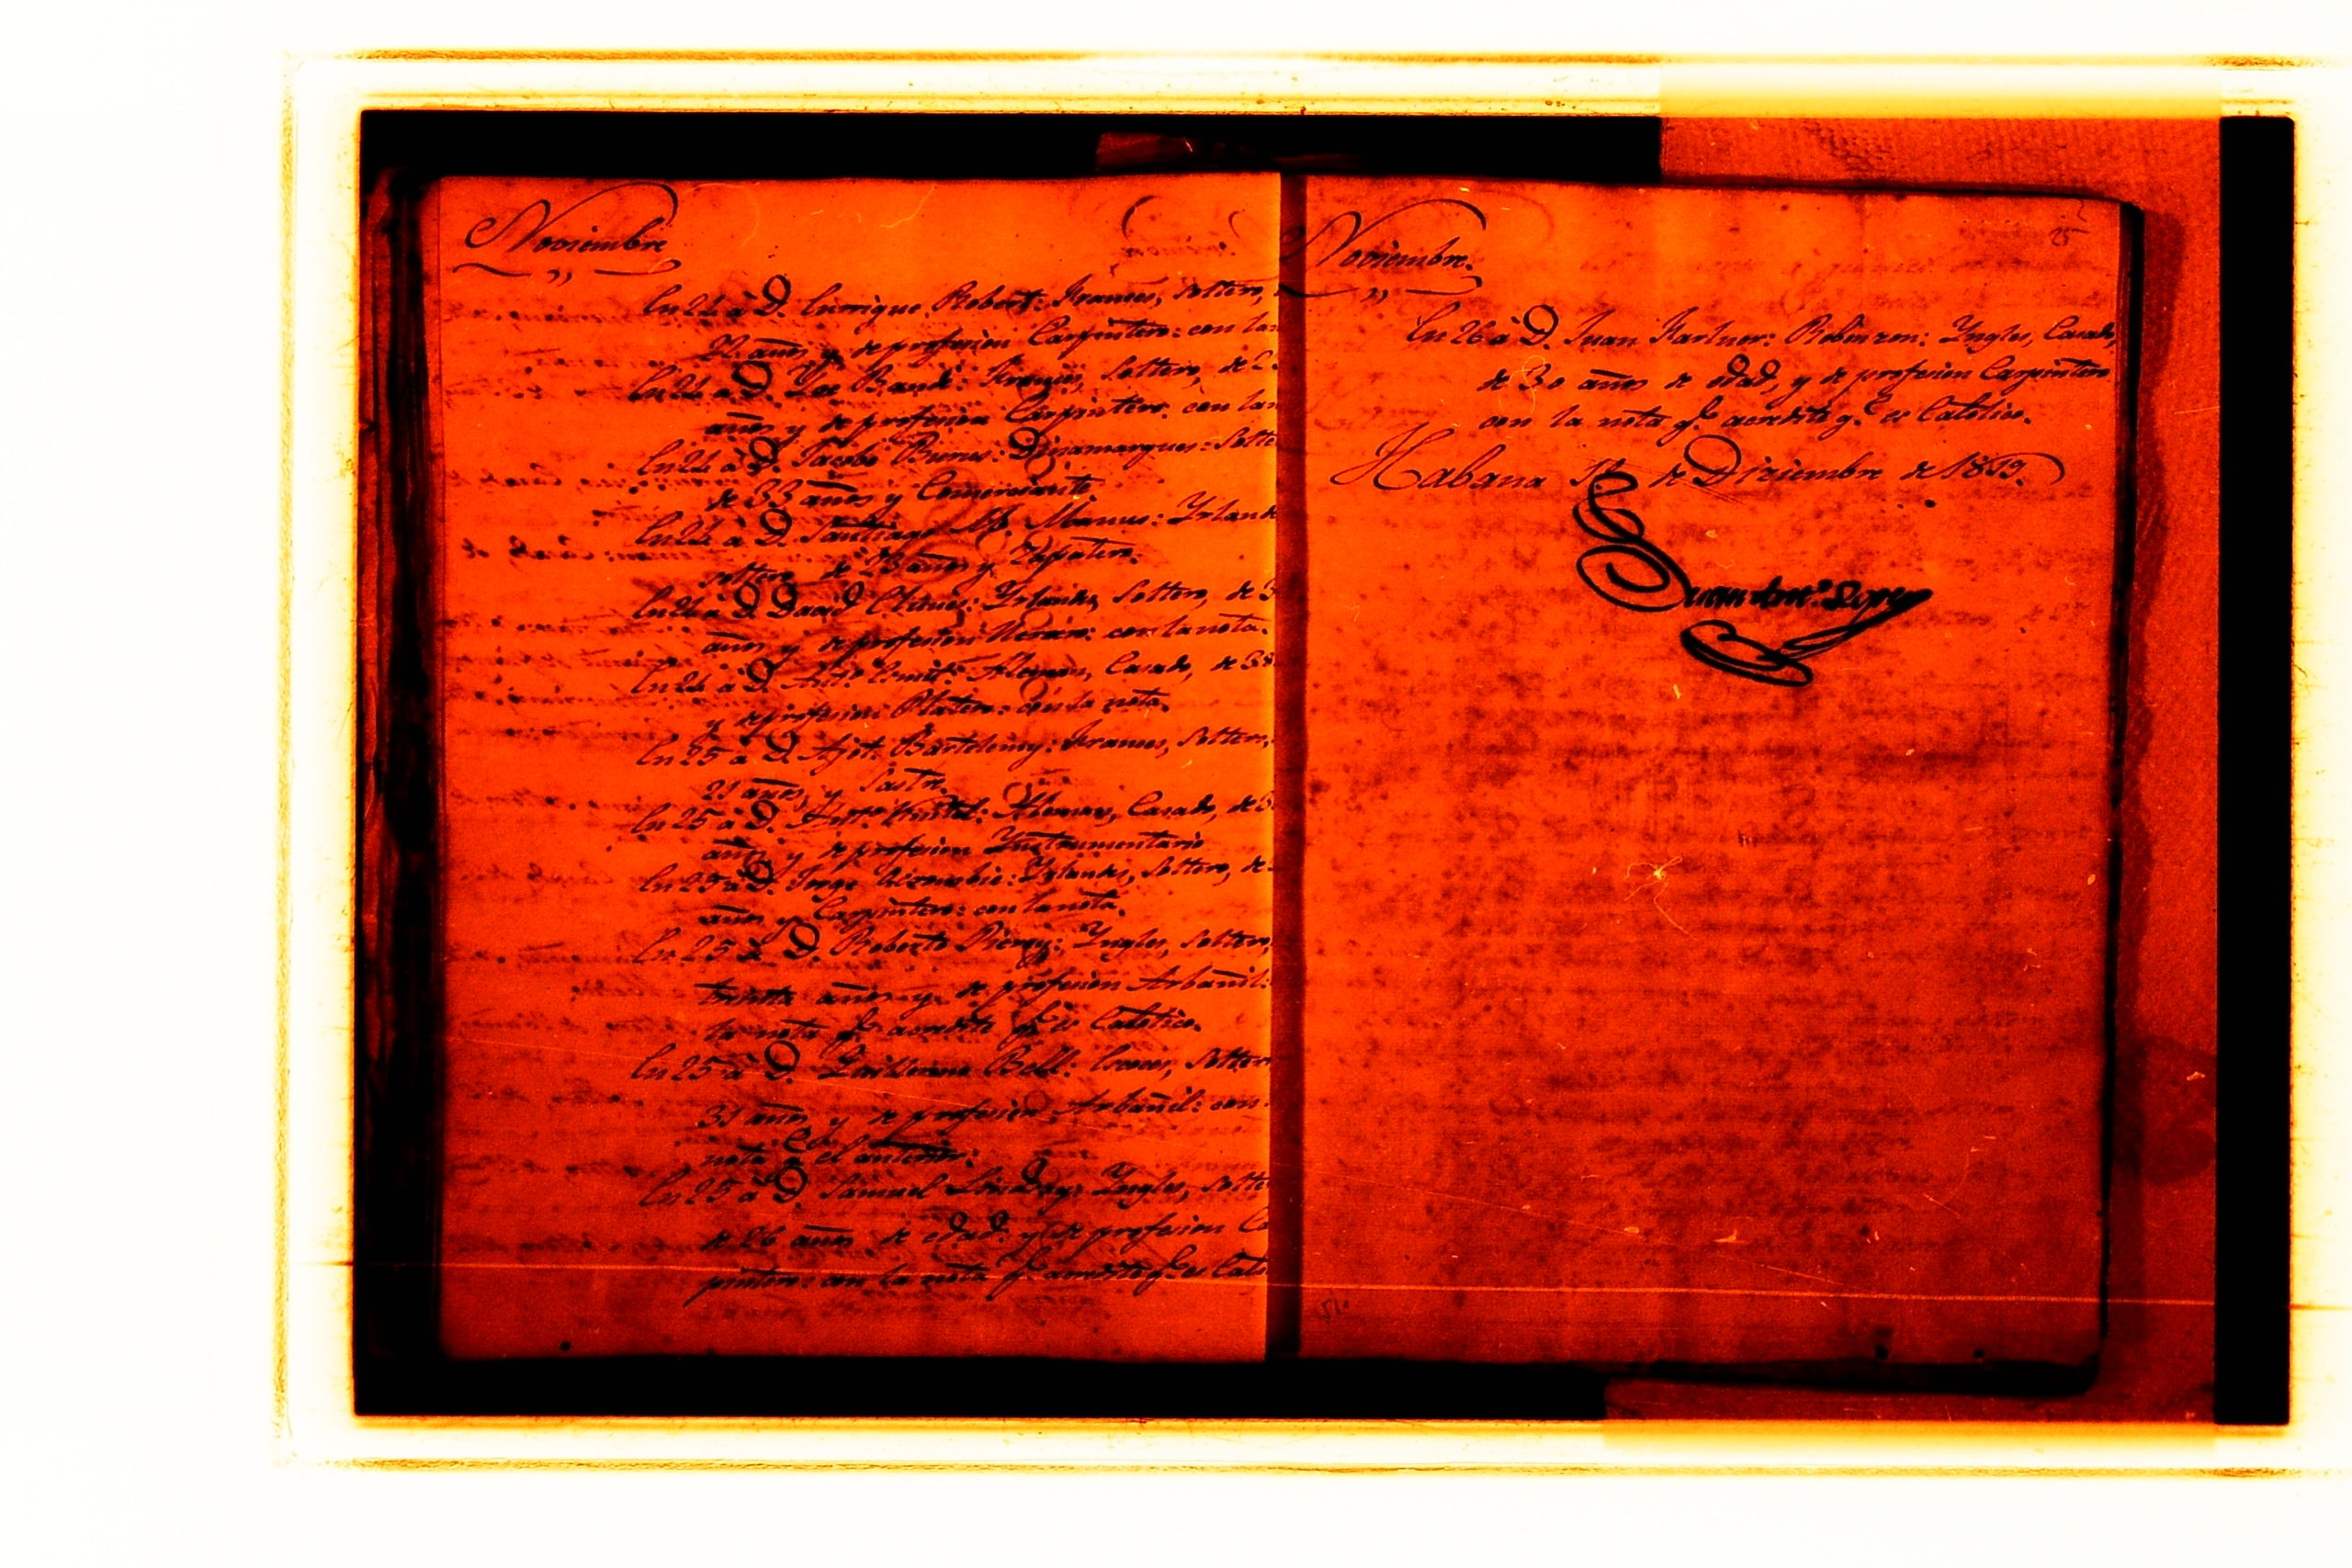 Noviembre
En 24 à D. Enrrique Robert: Frances, soltero,
22 años y de profesion Carpintero: con la
En 24 à D. Frances, soltero, de 2
años y de profesion Carpintero. con la
En 24 à D. Jacobo Dinamarques: solte
de 33 años y Comerciante.
En 24 à D. Santiago
soltero de 28 años y Zapatero.
En 24 à D. David Yrlandes, soltero, de 3
años y de profesion con la nota.
En 24 à D. Ant.º Aleman, Casado, de 38
y de profesion Platero: con la nota.
En 25 à D. Bartelemy: Frances, soltero,
21 años, y Sastre.
En 25 à D. Ant.º Aleman, Casado, de
años y de profesion Ynstrumentario
En 25 à D. Jorge Yrlandes, soltero, de
años y Carpintero: con la nota.
En 25 à D. Roberto Yngles, soltero,
treinta años y de profesion Arbañil:
la nota q.e acredite q.e es Catolico.
En 25 à D. Guillermo Bell: Escoces, soltero
31 años y de profesion Arbañil: con
nota q.e el anterior:
En 25 à D. Samuel Lindsay: Yngles, solte
de 26 años de edad y de profesion Ca
pintero: con la nota q.e acredite q.e es Cato
Noviembre.
25
En 26 à D. Juan Robinzon: Yngles, Casado,
de 30 años de edad, y de profesion Carpintero
con la nota q.e acredite q.e es Catolico.
Habana de Diziembre de 1819.
Juan Ant.º Lopez